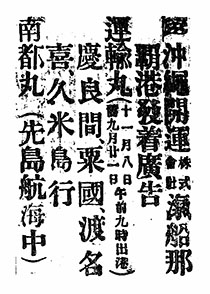 沖繩開運株式會社滊船那
覇港發着廣告
運輸丸(十一月八日舊九月廿一日午前九時出港)
慶良間、粟國、渡名
喜、久米島行
南都丸(先島航海中)